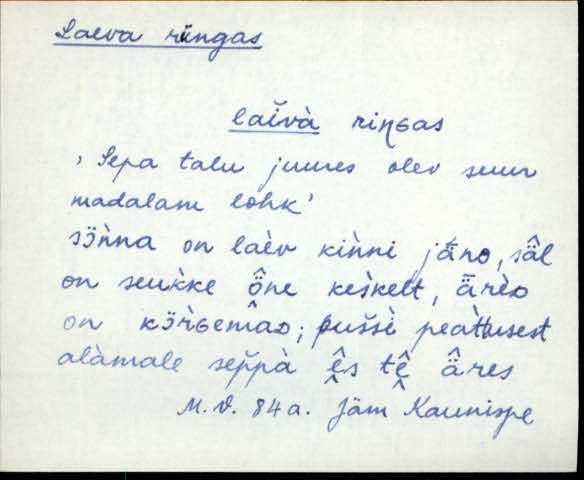 Laeva ringas
laĭvà riŋɢas
, Sepa talu juures olev suur
madalam lohk'
sɜ̈̀nna on laèv kìnni jǟnᴅ, sä̂l
on seuk̀ke ȫ̂ne kes̀kelt, ä̂rèᴅ
on kɜ̈̀rɢemaᴅ; pušsè peàttusest
alàmale sep̆pà ê̬s tê̬ ä̂res
M.V. 84a. Jäm Kaunispe